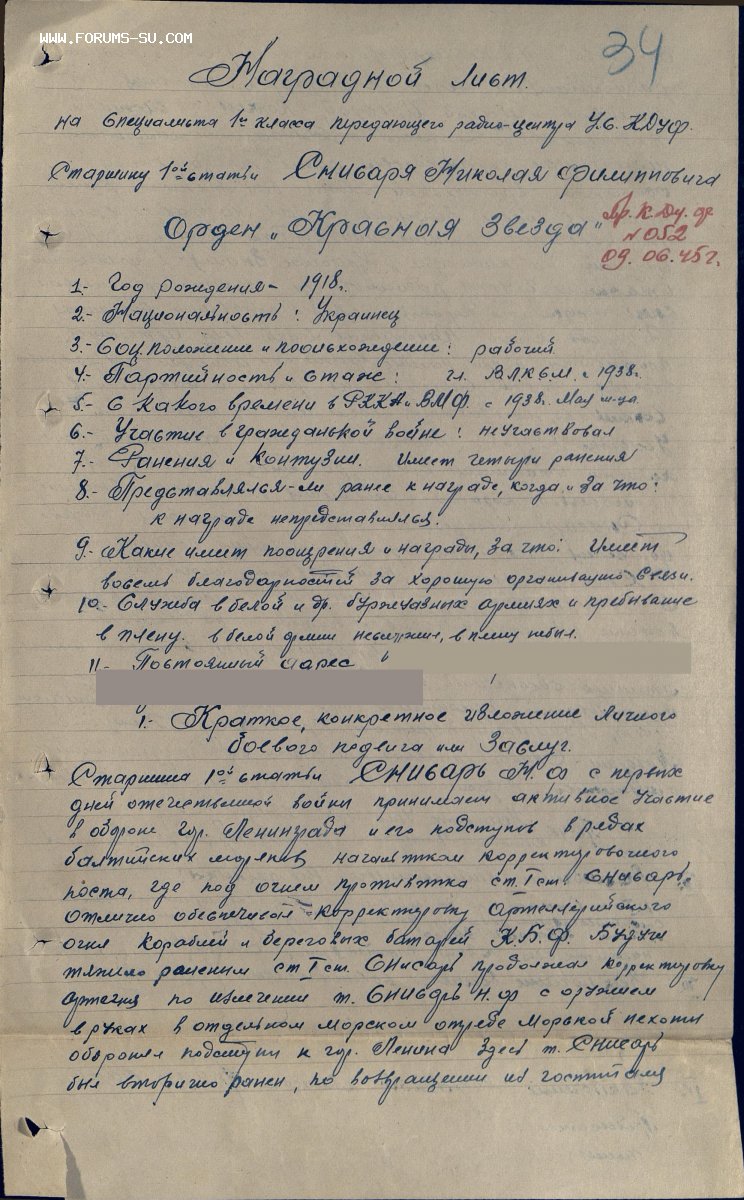 WWW.FORUMS-SU.COM
34
Наградной лист.
на специалиста 1го класса передающего радио-центра У.С. КДуФ.
Старшину 1ой статьи Снисаря Николая Филипповича
Орден „Красная Звезда"
Пр. К.Ду.ф
N 052
09.06.45г.
1.- Год рождения - 1918г.
2.- Национальность: Украинец
3.- Соц положение и происхождение: рабочий
4.- Партийность и стаж: чл. ВЛКСМ с 1938г.
5.- С какого времени в РККА и ВМФ. с 1938г. Мая м-ца
6.- Участие в гражданской войне: неучаствовал
7.- Ранения и контузии. Имеет четыри ранения
8.- Представлялся-ли ранее к награде, когда и за что:
к награде непредставлялся.
9.- Какие имеет поощрения и награды, за что: Имеет
восемь благодарностей за хорошую организацию связи.
10.- Служба в белой и др. буржуазных армиях и пребывание
в плену. в белой армии неслужил, в плену небыл.
11.- Постоянный адрес
1.- Краткое, конкретное изложение личного
боевого подвига или заслуг.
Старшина 1ой статьи Снисарь Н.Ф с первых
дней отечественной войны принимает активное участие
в обороне гор. Ленинграда и его подступов в рядах
балтийских моряков начальником корректировочного
поста, где под огнем противника ст. I ст. Снисарь
отлично обеспечивал корректировку артеллерийского
огня кораблей и береговых батарей К.Б.Ф. Будучи
тяжело раненим ст I ст. Снисарь продолжал корректировку
артогня по излечении т. Снисарь Н.Ф с оружием
в руках в отдельном морском отряде морской пехоты
оборонял подступы к гор. Ленина Здесь т. Снисарь
был вторично ранен, по возвращении из госпиталя